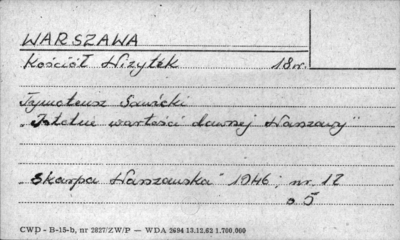 WARSZAWA
Kościół Wizytek 18 w.
Tymoteusz Sawicki
"Istotne wartości dawnej Warszawy"
"Skarpa Warszawska" 1946, nr. 12
s. 5
CWD - B-15-b, nr 2827/ZW/P — WDA 2694 13.12.62 1.700.000